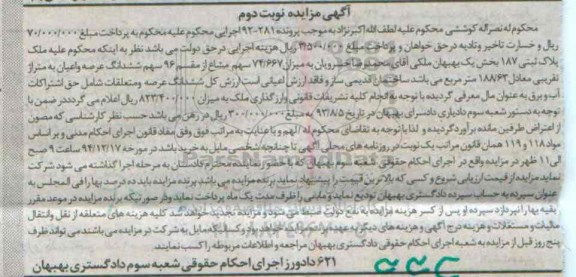 آگهی مزایده نوبت دوم
محکوم له نصراله کوششی محکوم علیه لطف الله اکبرنژاد به موجب پرونده ۲۸۱-۹۲ اجرایی محکوم علیه محکوم به پرداخت مبلغ ۷۰/۰۰۰/۰۰۰
ریال و خسارت تاخیر و تادیه در حق خواهان و پرداخت مبلغ ریال هزینه اجرایی در حق دولت می باشد نظر به اینکه محکوم علیه ملک
پلاک ثبتی ۱۸۷ بخش یک بهبهان ملکی آقای محمدرضا خسرویان به میزان ۷۴/۶۶۷ سهم مشاع از مقسم ۹۶ سهم ششدانگ عرصه و اعیان به متراژ
تقریبی معادل ۱۸۸/۶۳ متر مربع می باشد ساختمان قدیمی ساز و فاقد ارزش اعیانی است ارزش کل ششدانگ عرصه ومتعلقات شامل حق اشتراکات
آب و برق به عنوان مال معرفی گردیده با توجه به انجام کلیه تشریفات قانونی وارزگذاری ملک به میزان ریال اعلام می گردد در ضمن با
توجه به دستور شعبه سوم دادیاری دادسرای بهبهان در تاریخ ۹۳/۸/۵ به مبلغ ۳۰۰/۰۰۰/۰۰۰ ریال در رهن می باشد حسب نظر کارشناسی که مصون
از اعتراض طرفین مانده برآورد گردیده و لذا با توجه به تقاضای محکوم له / لهم و با عنایت به مراتب فوق وفق مفاد قانون اجرای احکام مدنی و بر اساس
مواد ۱۱۸ و ۱۱۹ همان قانون مراتب یک نوبت در روزنامه های محلی آگهی تا چنانچه شخصی مایل به خرید باشد در مورخه ۹۴/۱۲/۱۷ ساعت ۹ صبح
الی ۱۱ ظهر در مزایده واقع در اجرای احکام حقوقی شعبه که با حضور نماینده محترم دادستان به مرحله اجرا گذاشته می شود شرکت
نماید مزایده از قیمت ارزیابی شروع و کسی که بالاترین قیمت را پیشنهاد نماید برنده مزایده می باشد برنده مزایده باید ده درصد بها را فی المجلس به
عنوان سپرده به حساب سپرده دادگستری بهبهان تودیع نماید و مابقی را ظرف مدت یک ماه پرداخت نماید و در صورتیکه برنده مزایده در موعد مقرر
بقیه بها را نپردازد سپرده او پس از کسر هزینه مزایده به نفع دولت ضبط می شود و مزایده تجدید خواهد شد کلیه هزینه های متعلقه از نقل وانتقال
مالیات و مستغلات و هزینه درج آگهی و هزینه های دیگر به عهده خواهد بود و کسانیکه مایل به شرکت در مزایده می باشند می تواند ظرف
پنج روز قبل از مزایده به شعبه اجرای احکام حقوقی دادگستری بهبهان مراجعه و اطلاعات مربوطه را کسب نمایند
۶۲۱ دادورز اجرای احکام حقوقی شعبه سوم دادگستری بهبهان